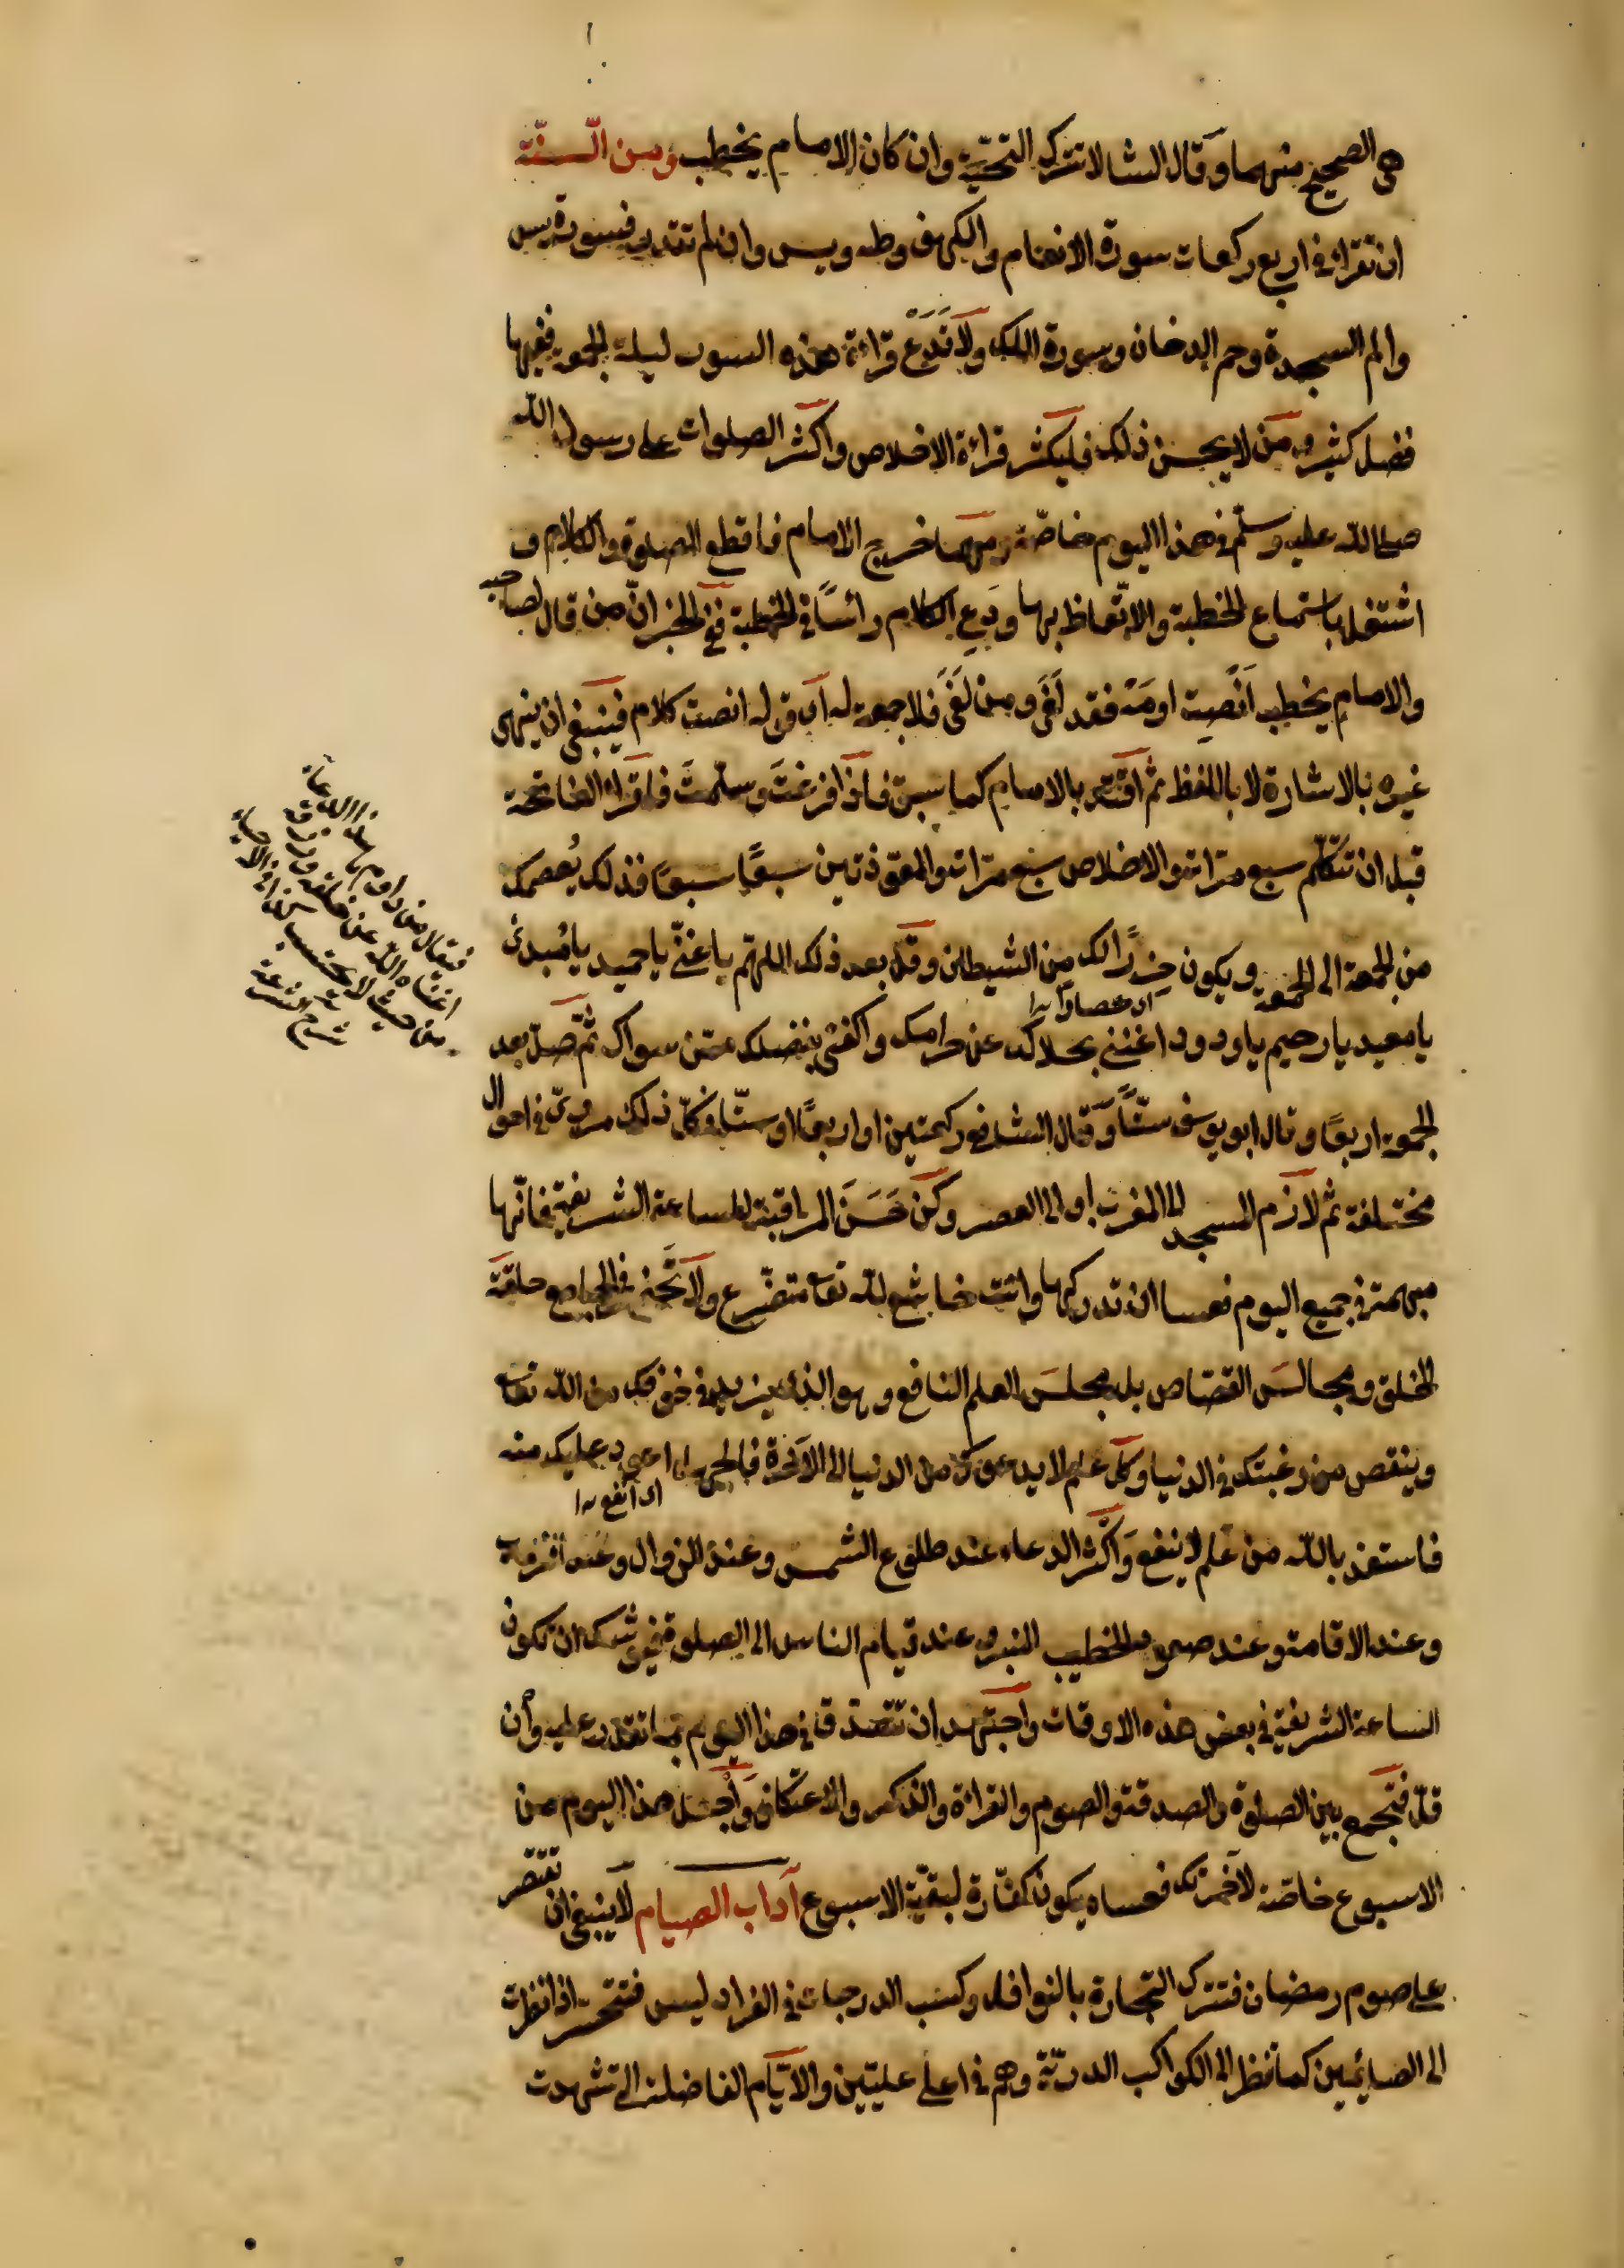 هى الصحيح منهما وقال الشا لا تترك التحيّة وان كان الامام يخطب ومن السنّة
ان تقراء فى اربع ركعات سورة الانعام والكهف وطه ويس وان لم تقدر فسورة يس
والم السجدة وحم الدخان وسورة الملك ولا تَدَعْ قراءة هذه السور ليلة الجمعة ففيها
فضل كثير ومن لا يحسن ذلك فليكثر قراءة الاخلاص واكثر الصلوات على رسول الله
صلى الله عليه وسلّم فى هذا اليوم خاصّة ومهما خرج الامام فاقطع الصلوة والكلام و
اشتغل باستماع الخطبة والاتّعاظ بها ودَعِ الكلام رائسًا فى الخطبة ففى الخبر انّ من قال لصاحبه
والامام يخطب اَنْصِت او مَهْ فقد لَغَى ومن لَغَى فلا جمعة له اى قوله انصت كلام فينبغى ان ينهى
غيره بالاشارة لا باللفظ ثم اقتد بالامام كما سبق فاذا فرغتَ وسلّمتَ فاقراء الفاتحة
قبل ان تتكلّم سبع مرّات والاخلاص سبع مرّات والمعوّذتين سبعًا سبعًا فذلك يُعصمك
من الجمعة الى الجمعة ويكون حِرزًا لك من الشيطان وقل بعد ذلك اللهمّ يا غنىّ يا حميد يا مُبدئ
يا معيد يا رحيم يا ودود اغننى بحلالك عن حرامك واكفنى بفضلك عمّن سواك ثمّ صلّ بعد
الجمعة اربعًا وقال ابو يوسف ستّاً وقال الشافعى ركعتين او اربعًا او ستّا وكلّ ذلك مروىّ فى احوال
مختلفة ثم لازم المسجد الى المغرب او الى العصر وكن حَسَنَ المراقبة للساعة الشريفة فانّها
مبهمة فى جميع اليوم فعسا ان تدركها وانت خاشع لله تعالى متضرّع ولا تحضر فى الجامع حلقة
الخلق ومجالسَ القصّاص بل مجلسَ العلم النافع وهو الذى يزيد فى خوفك من الله تعالى
وينقص من رغبتك فى الدنيا وكلّ علم لا يدعوك من الدنيا الى الآخرة فالجهل اعود عليك منه
اى انفع
فاستعذ بالله من علم لا ينفع واكثر الدعاء عند طلوع الشمس وعند الزوال وعند الغروب
وعند الاقامة وعند صعود الخطيب المنبر وعند قيام الناس الى الصلوة فيوشك ان تكون
الساعة الشريفة فى بعض هذه الاوقات واجتهد ان تتصدّق فى هذا اليوم بما تقدر عليه وان
قلّ فتجمع بين الصلوة والصدقة والصوم والقراءة والذكر والاعتكاف واجعل هذا اليوم من
الاسبوع خاصّة لآخرتك فعساه يكون كفّارة لبقيّة الاسبوع آداب الصيام لا ينبغى ان تقتصر
على صوم رمضان فتترك التجارة بالنوافل وكسب الدرجات فى الفراديس فتتحسر اذا نظرت
الى الصائمين كما تنظر الى الكواكب الدرّيّة وهم فى اعلى عليّين والايّام الفاضلة التى شهدت
فيقال من داوم
اغناه الله عن خلقه ورزقه
من حيث لا يحتسب
شرح الشرعة